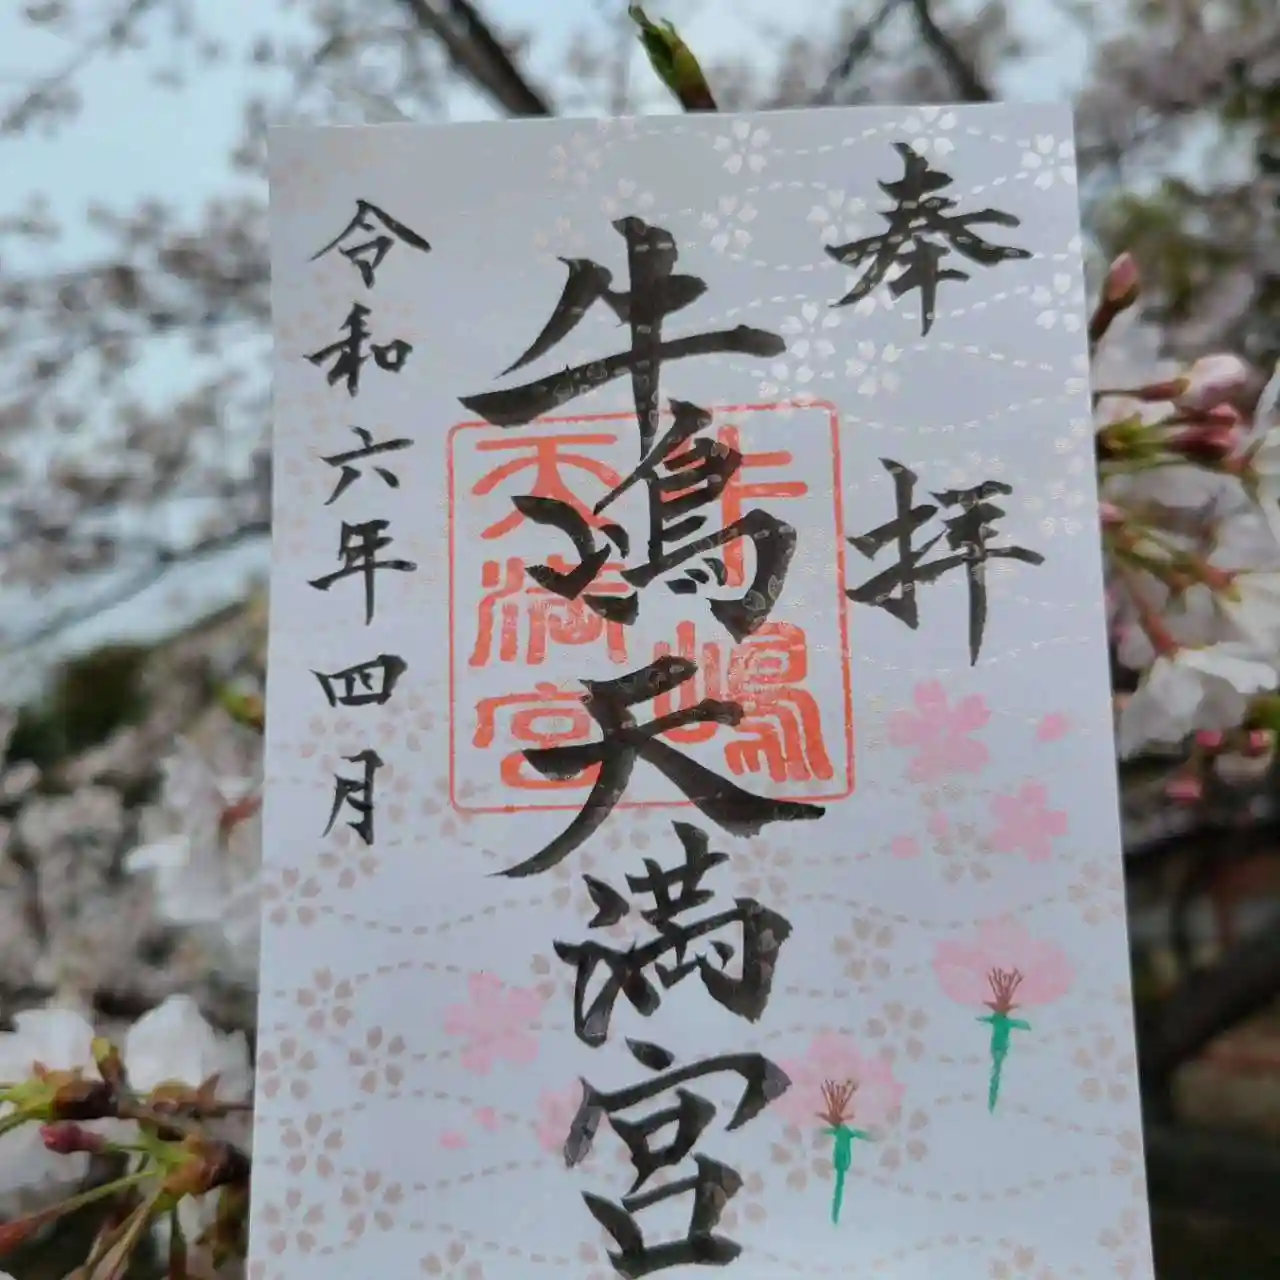 奉拝
牛嶋天満宮
牛嶋
天満宮
令和六年四月